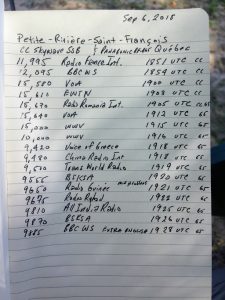 Sep 6, 2018
Petite-Rivière-Saint-François
CC Skywave SSB Québec
11,995 Radio France Int. 1851 UTC CC
12,095 BBC WS 1854 UTC CC
15,580 VOA 1900 UTC CC
15,610 EWTN 1903 UTC CC
Radio Romania Int 1905 UTC
15,640 VOA 1912 UTC 65
15,000 WWV 1915 UTC 65
10,000 WWV 1916 UTC 65
9,420 Voice of Greece 1918 UTC 65
China Radio Int. 1918 UTC 65
Trans World Radio 1919 UTC 65
9555 BSKSA 1920 UTC 65
9650 Radio Guinée 1921 UTC 65
9675 Radio 1922 UTC 65
9810 All India Radio 1925 UTC 65
9870 BSKSA 1926 UTC 65
9885 BBC WS English 1928 UTC 65